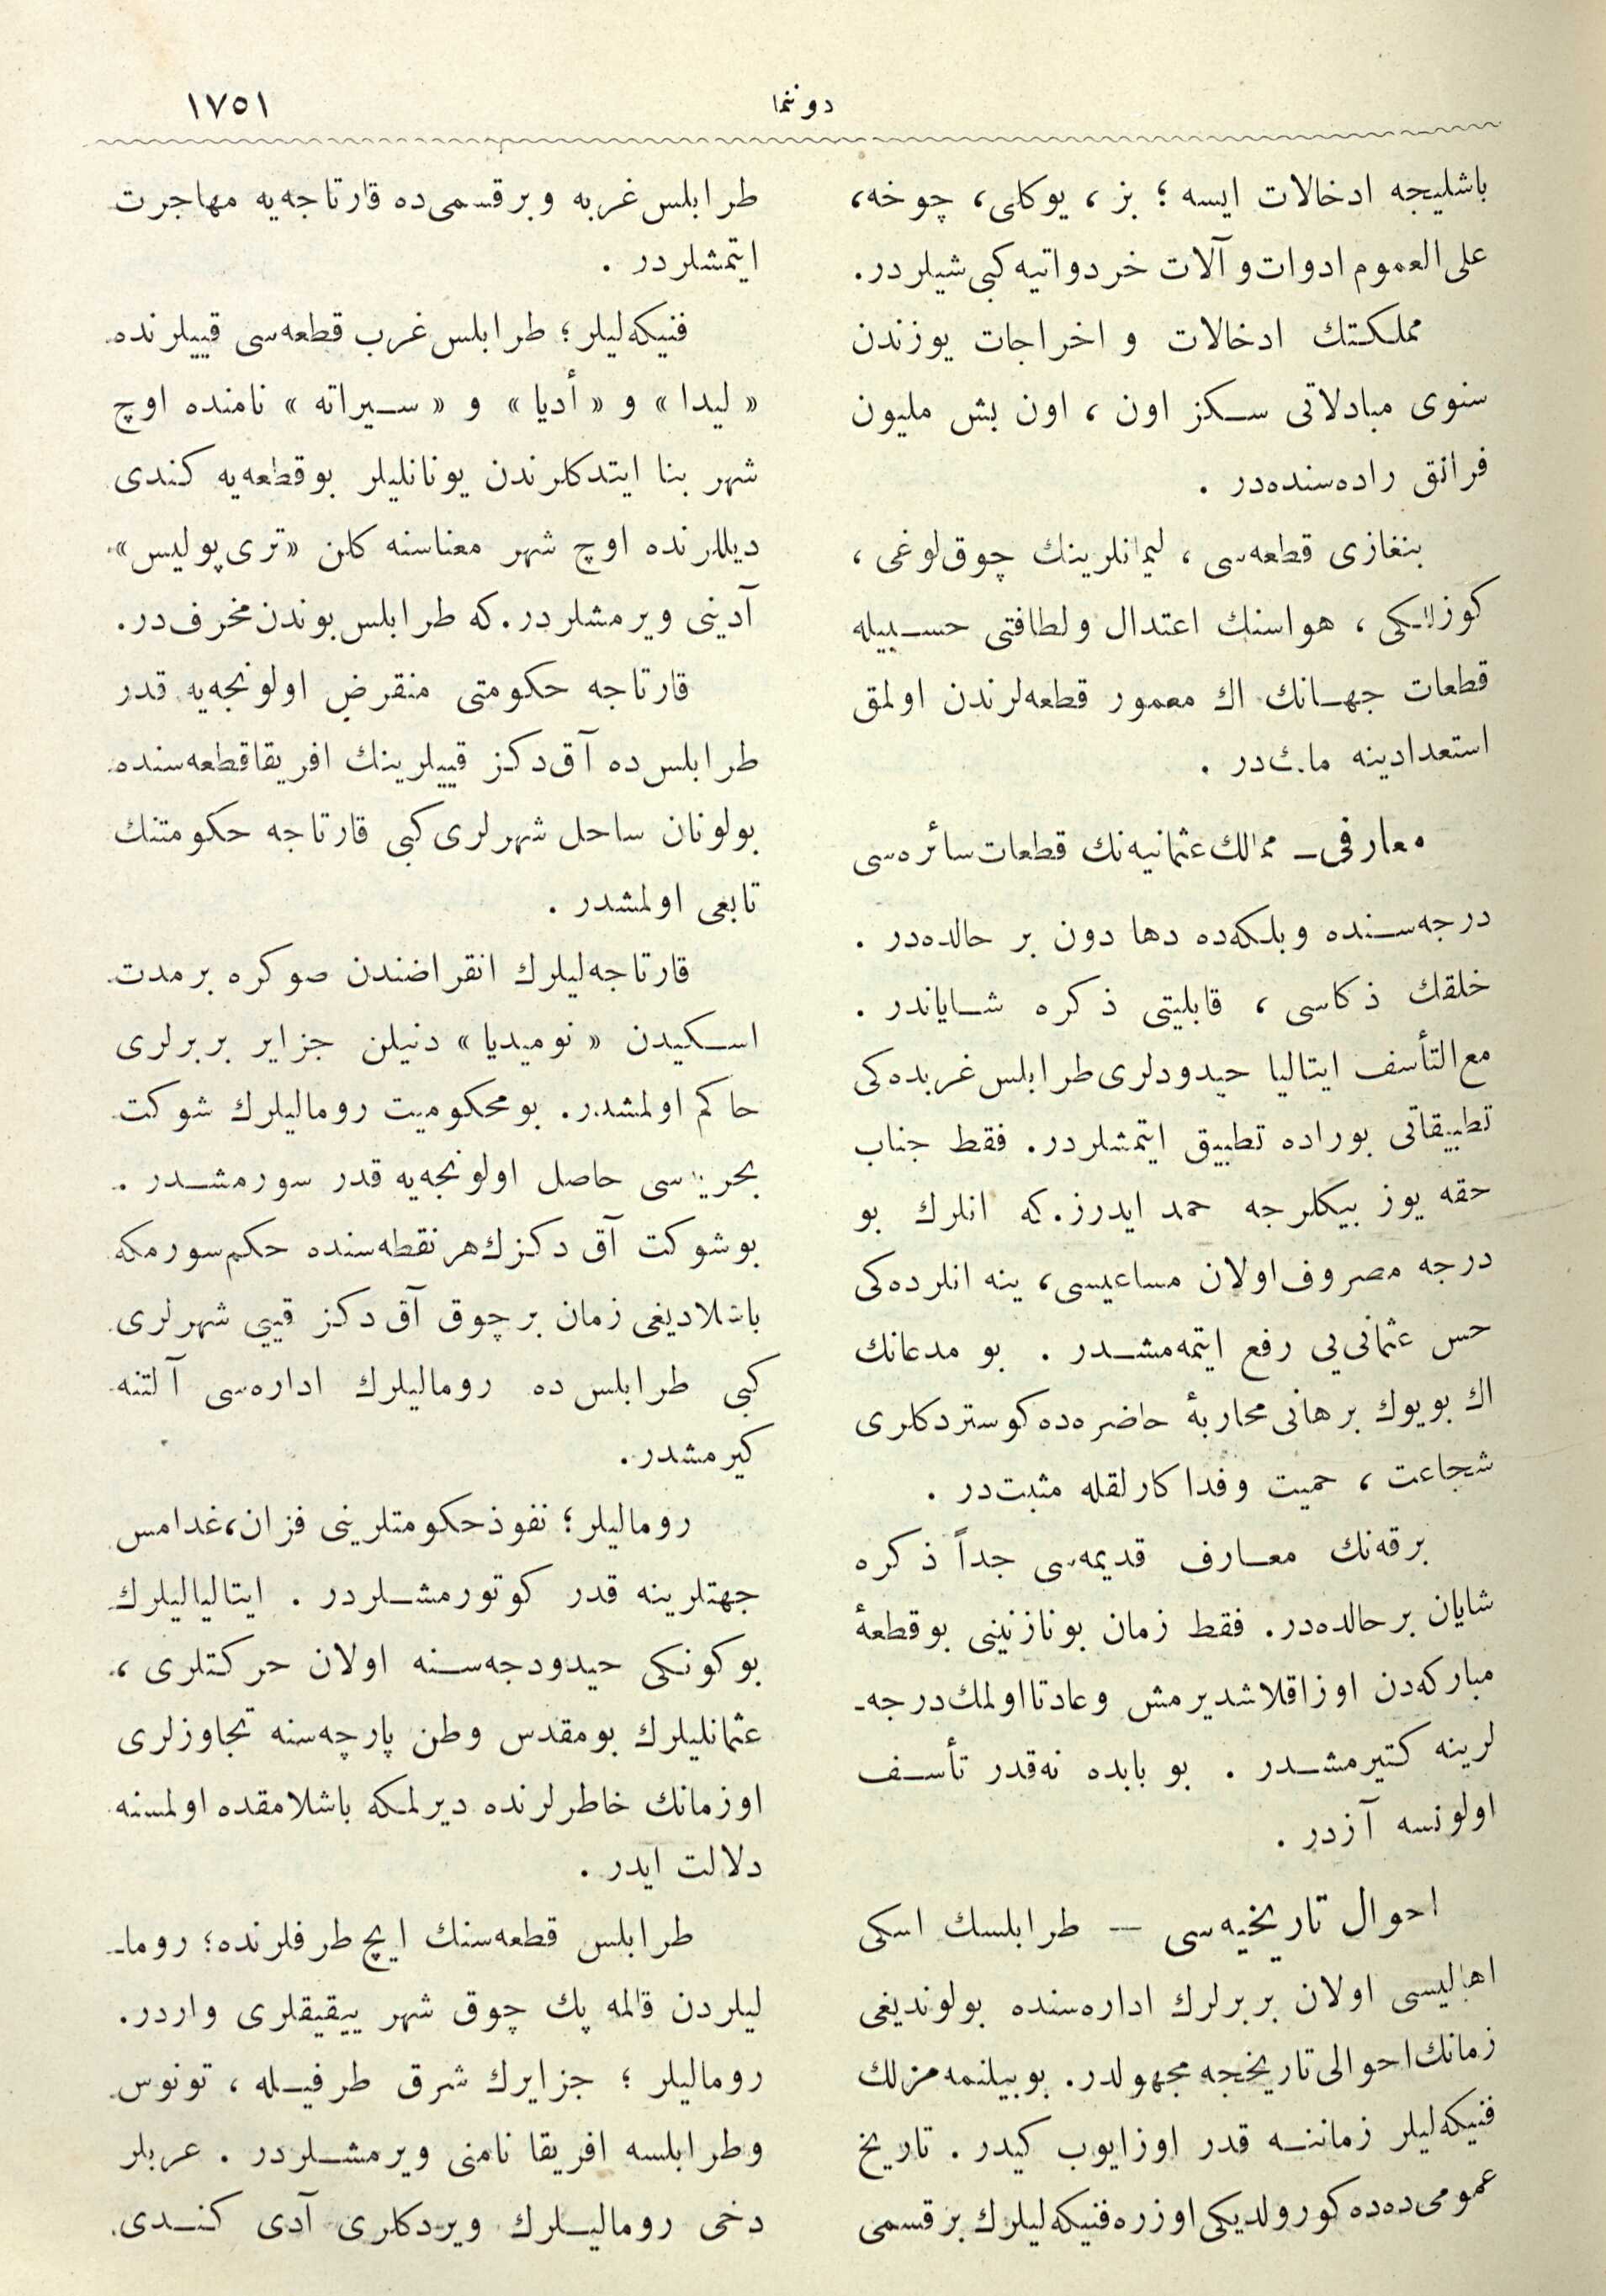 دوننما
١٧٥١
باشليجه ادخالات ايسه ؛ بز ، يوكلى ، چوخه ،
على‌العموم ادوات و آلات خردواتيه كبى شيلردر .
مملكتك ادخالات و اخراجات يوزندن
سنوى مبادلاتى سكز اون ، اون بش مليون
فرانق راده‌سنده‌در .
بنغازى قطعه‌سى ، ليمانلرينك چوق‌لوغى ،
كوزلـلكى ، هواسنك اعتدال ولطافتى حسبيله
قطعات جهانك اك معمور قطعه‌لرندن اولمق
استعدادينه مالك‌در .
معارفى ــ ممالك عثمانيه‌نك قطعات سائره‌سى
درجه‌سنده وبلكه‌ده دها دون بر حالده‌در .
خلقك ذكاسى ، قابليتى ذكره شاياندر .
مع‌التأسف ايتاليا حيدودلرى طرابلس غربده‌كى
تطبيقاتى بوراده تطبيق ايتمشلردر . فقط جناب
حقه يوز بيكلرجه حمد ايدرز . كه انلرك بو
درجه مصروف اولان مساعيسى ، ينه انلرده‌كى
حس عثمانى‌يى رفع ايتمه‌مشدر . بو مدعانك
اك بويوك برهانى محاربۀ حاضره‌ده كوستردكلرى
شجاعت ، حميت وفداكارلقله مثبت‌در .
برقه‌نك معارف قديمه‌سى جداً ذكره
شايان برحالده‌در . فقط زمان بونازنينى بوقطعۀ
مباركه‌دن اوزاقلاشديرمش وعادتا اولمك درجه‌ـ
لرينه كتيرمشدر . بو بابده نه‌قدر تأسف
اولونسه آزدر .
احوال تاريخيه‌سى — طرابلسك اسكى
اهاليسى اولان بربرلرك اداره‌سنده بولونديغى
زمانك احوالى تاريخجه مجهولدر . بوبيلنمه‌مزلك
فنيكه‌ليلر زماننه قدر اوزايوب كيدر . تاريخ
عمومى‌ده‌ده كورولديكى اوزره فنيكه‌ليلرك برقسمى
طرابلس غربه وبرقسمى‌ده قارتاجه‌يه مهاجرت
ايتمشلردر .
فنيكه‌ليلر ؛ طرابلس غرب قطعه‌سى قييلرنده
« ليدا » و « أديا » و « سيراته » نامنده اوچ
شهر بنا ايتدكلرندن يونانليلر بوقطعه‌يه كندى
ديللرنده اوچ شهر معناسنه كلن «ترى‌پوليس»
آدينى ويرمشلردر . كه طرابلس بوندن محرف‌در .
قارتاجه حكومتى منقرض اولونجه‌يه قدر
طرابلس‌ده آق‌دكز قييلرينك افريقاقطعه‌سنده
بولونان ساحل شهرلرى كبى قارتاجه حكومتنك
تابعى اولمشدر .
قارتاجه‌ليلرك انقراضندن صوكره برمدت
اسكيدن « نوميديا » دنيلن جزاير بربرلرى
حاكم اولمشدر . بومحكوميت روماليلرك شوكت
بحريه‌سى حاصل اولونجه‌يه قدر سورمشدر .
بوشوكت آق دكزك هرنقطه‌سنده حكم سورمكه
باشلاديغى زمان برچوق آق دكز قييى شهرلرى
كبى طرابلس ده روماليلرك اداره‌سى آلتنه
كيرمشدر .
روماليلر ؛ نفوذحكومتلرينى فزان ، غدامس
جهتلرينه قدر كوتورمشلردر . ايتالياليلرك
بوكونكى حيدودجه‌سنه اولان حركتلرى ،
عثمانليلرك بومقدس وطن پارچه‌سنه تجاوزلرى
اوزمانك خاطرلرنده ديرلمكه باشلامقده اولمسنه
دلالت ايدر .
طرابلس قطعه‌سنك ايچ طرفلرنده ؛ روماـ
ليلردن قالمه پك چوق شهر ييقيقلرى واردر .
روماليلر ؛ جزايرك شرق طرفيله ، تونوس
وطرابلسه افريقا نامنى ويرمشلردر . عربلر
دخى روماليلرك ويردكلرى آدى كندى